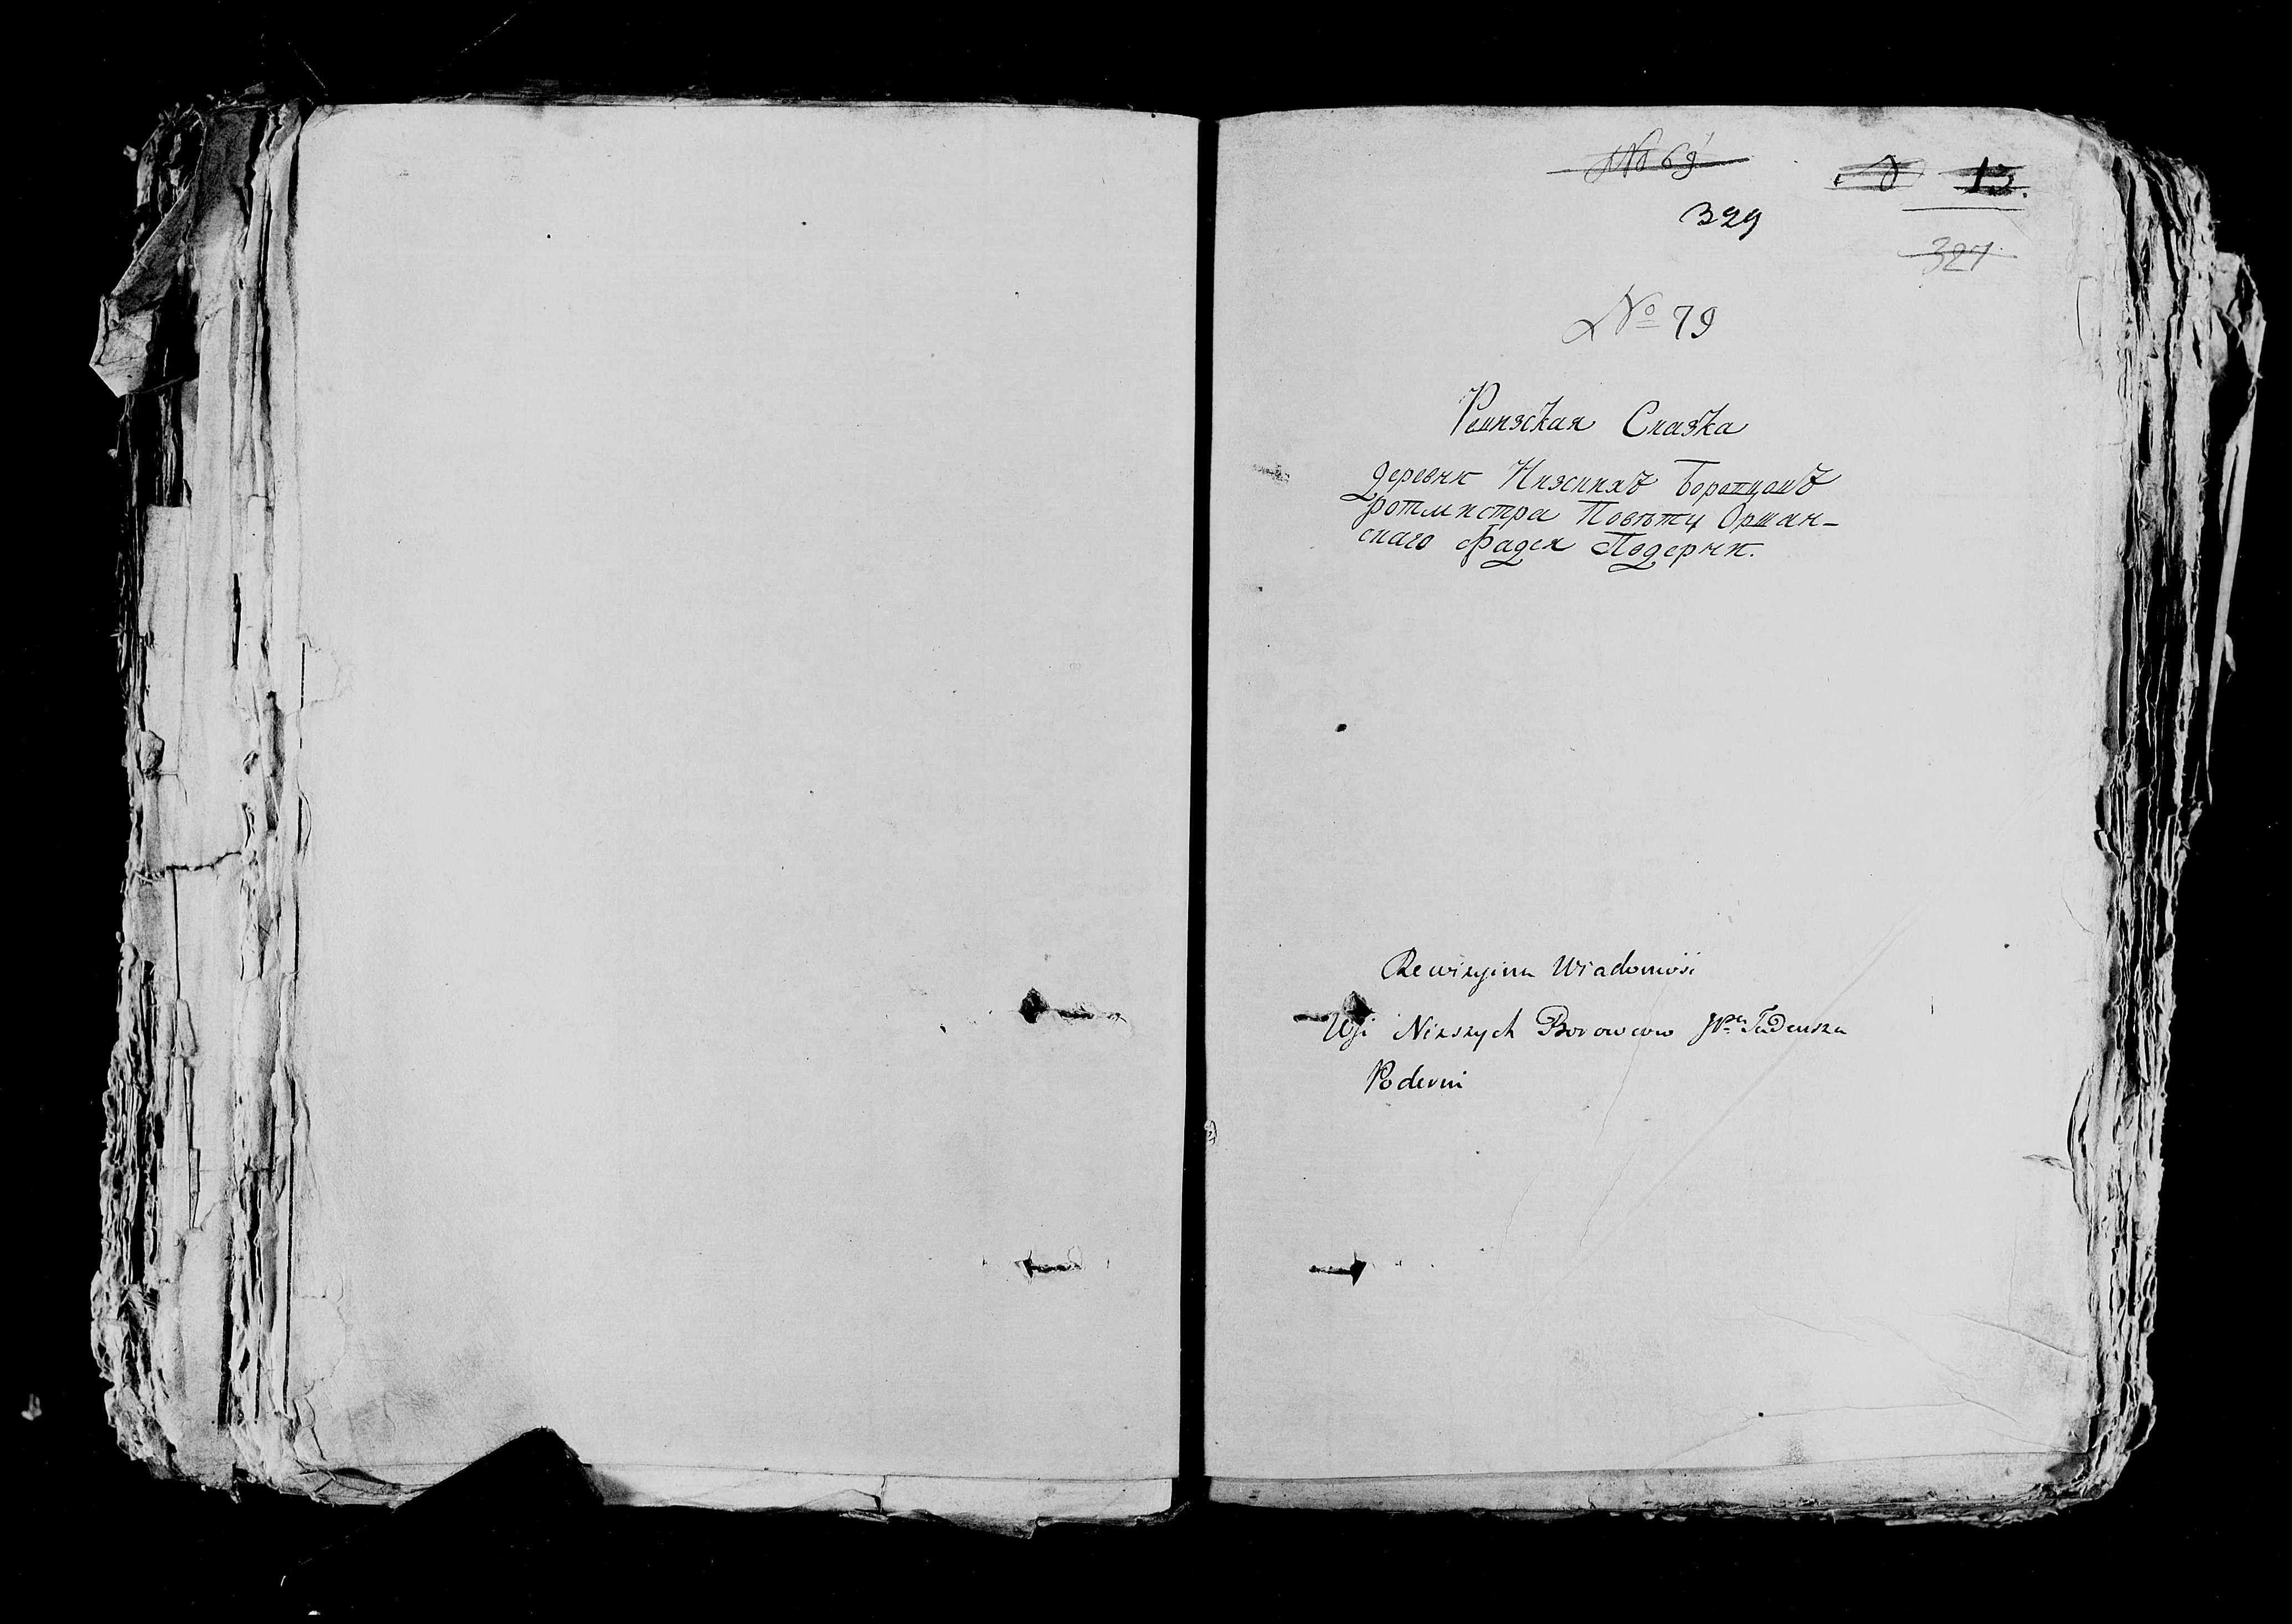 № 69
13.
329
327
№ 79
Ревизская Сказка
деревни Низшихъ Боровцовъ
ротмистра Повѣту Оршан-
скаго Фадея Подерни.
Rewizyina Wiadomość
Wsi Nizszych Borowcow JPa Tadeusza
Poderni